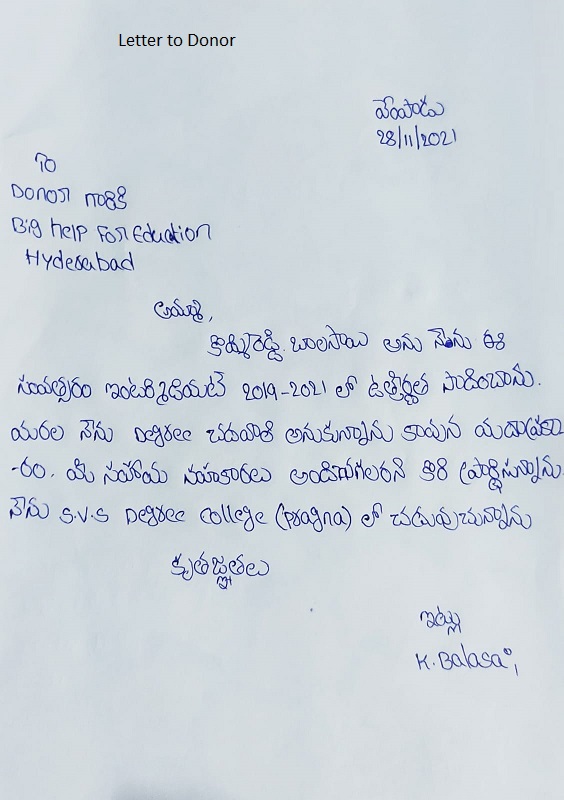 Letter to Donor
వేంపాడు
28/11/2021
To
Donor గారికి
Big help For Eduction
Hyderabad
అయ్యా,
కొమ్మిరెడ్డి. బాలసాయి అను నేను ఈ
సంవత్సరం ఇంటర్మీడియట్ 2019-2021 లో ఉత్తీర్ణత సాదించాను.
మరల నేను Degree చదవాలి అనుకున్నాను కావున యదాప్రకా
-రం. మీ సహాయ సహకారలు అందించగలరని కోరి ప్రార్థిసున్నాను.
నేను S.V.S Degree College (pragna) లో చదువుచున్నాను
కృతజ్ఞతలు
ఇట్లు
K. Balasai